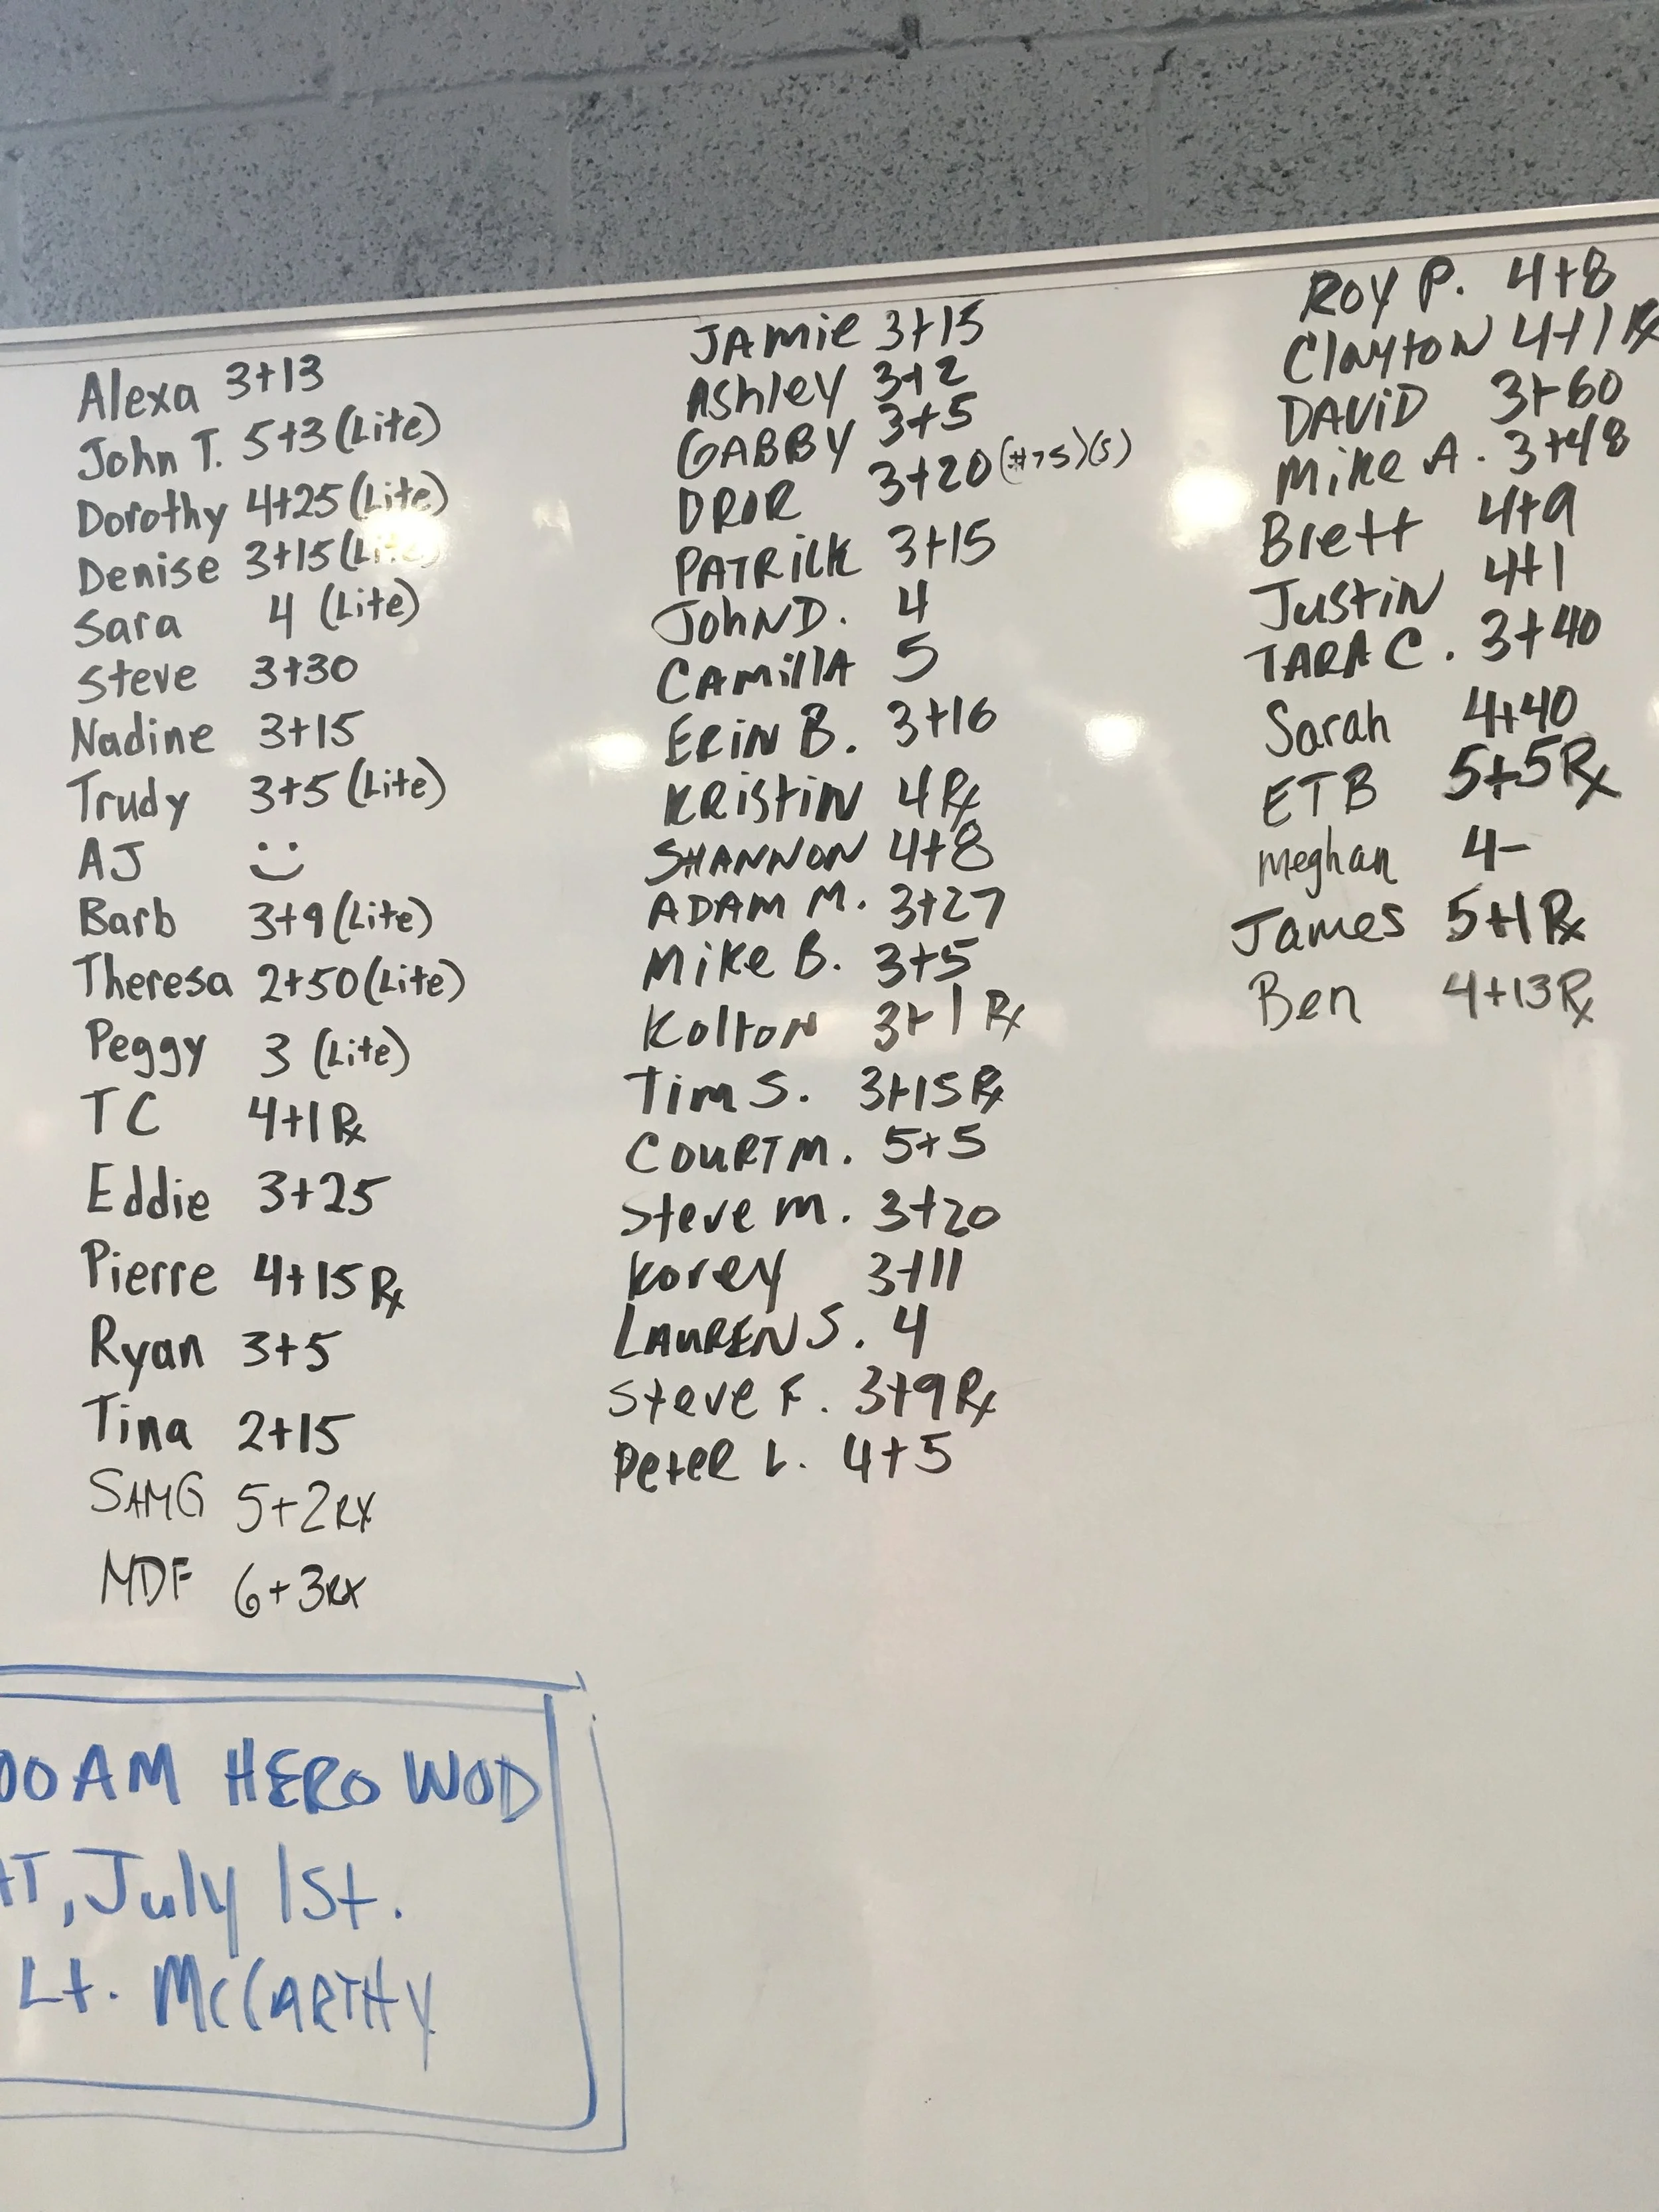 Alexa 3+13
John T. 5+3 (Lite)
Dorothy 4+25 (Lite)
Denise 3+15 (Lite)
Sara 4 (Lite)
Steve 3+30
Nadine 3+15
Trudy 3+5 (Lite)
AJ
Barb 3+9 (Lite)
Theresa 2+50 (Lite)
Peggy 3 (Lite)
TC 4+1 Rx
Eddie 3+25
Pierre 4+15 Rx
Ryan 3+5
Tina 2+15
SAMG 5+2 RX
MDF 6+3 RX
JAMIE 3+15
AShleY 3+2
GABBY 3+5
DROR 3+20 (#75) (S)
PATRiCK 3+15
JohN D. 4
CAMillA 5
ERiN B. 3+16
KRiStiN 4 Rx
SHANNON 4+8
ADAM M. 3+27
MiKe B. 3+5
KoltoN 3+1 Rx
Tim S. 3+15 Rx
COURT M. 5+5
Steve M. 3+20
Korey 3+11
LAUREN S. 4
Steve F. 3+9 Rx
PeteR L. 4+5
ROY P. 4+8
ClAytoN 4+1 Rx
DAViD 3+60
Mike A. 3+48
Brett 4+9
JustiN 4+1
TARA C. 3+40
Sarah 4+40
ETB 5+5 Rx
meghan 4-
James 5+1 Rx
Ben 4+13 Rx
00 AM HERO WOD
AT, July 1st.
Lt. McCARTHY